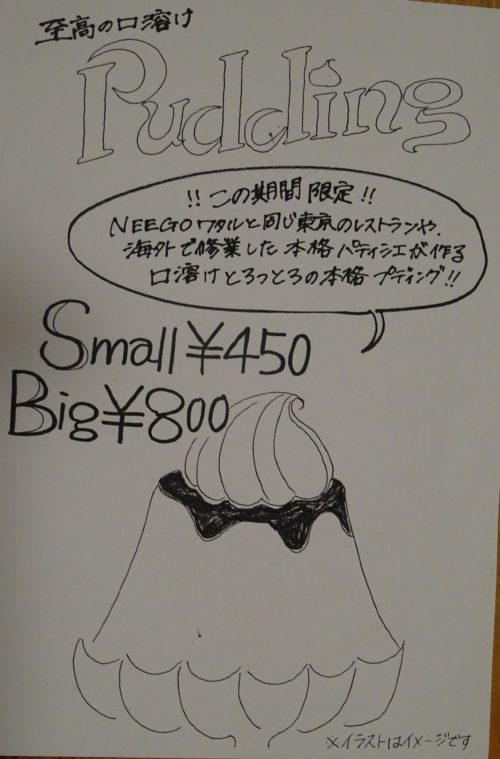 至高の口溶け
Pudding
!! この期間限定 !!
NEEGOワタルと同じ東京のレストランや、
海外で修業した本格パティシエが作る
口溶けとろっとろの本格プディング!!
Small ¥450
Big ¥800
※イラストはイメージです